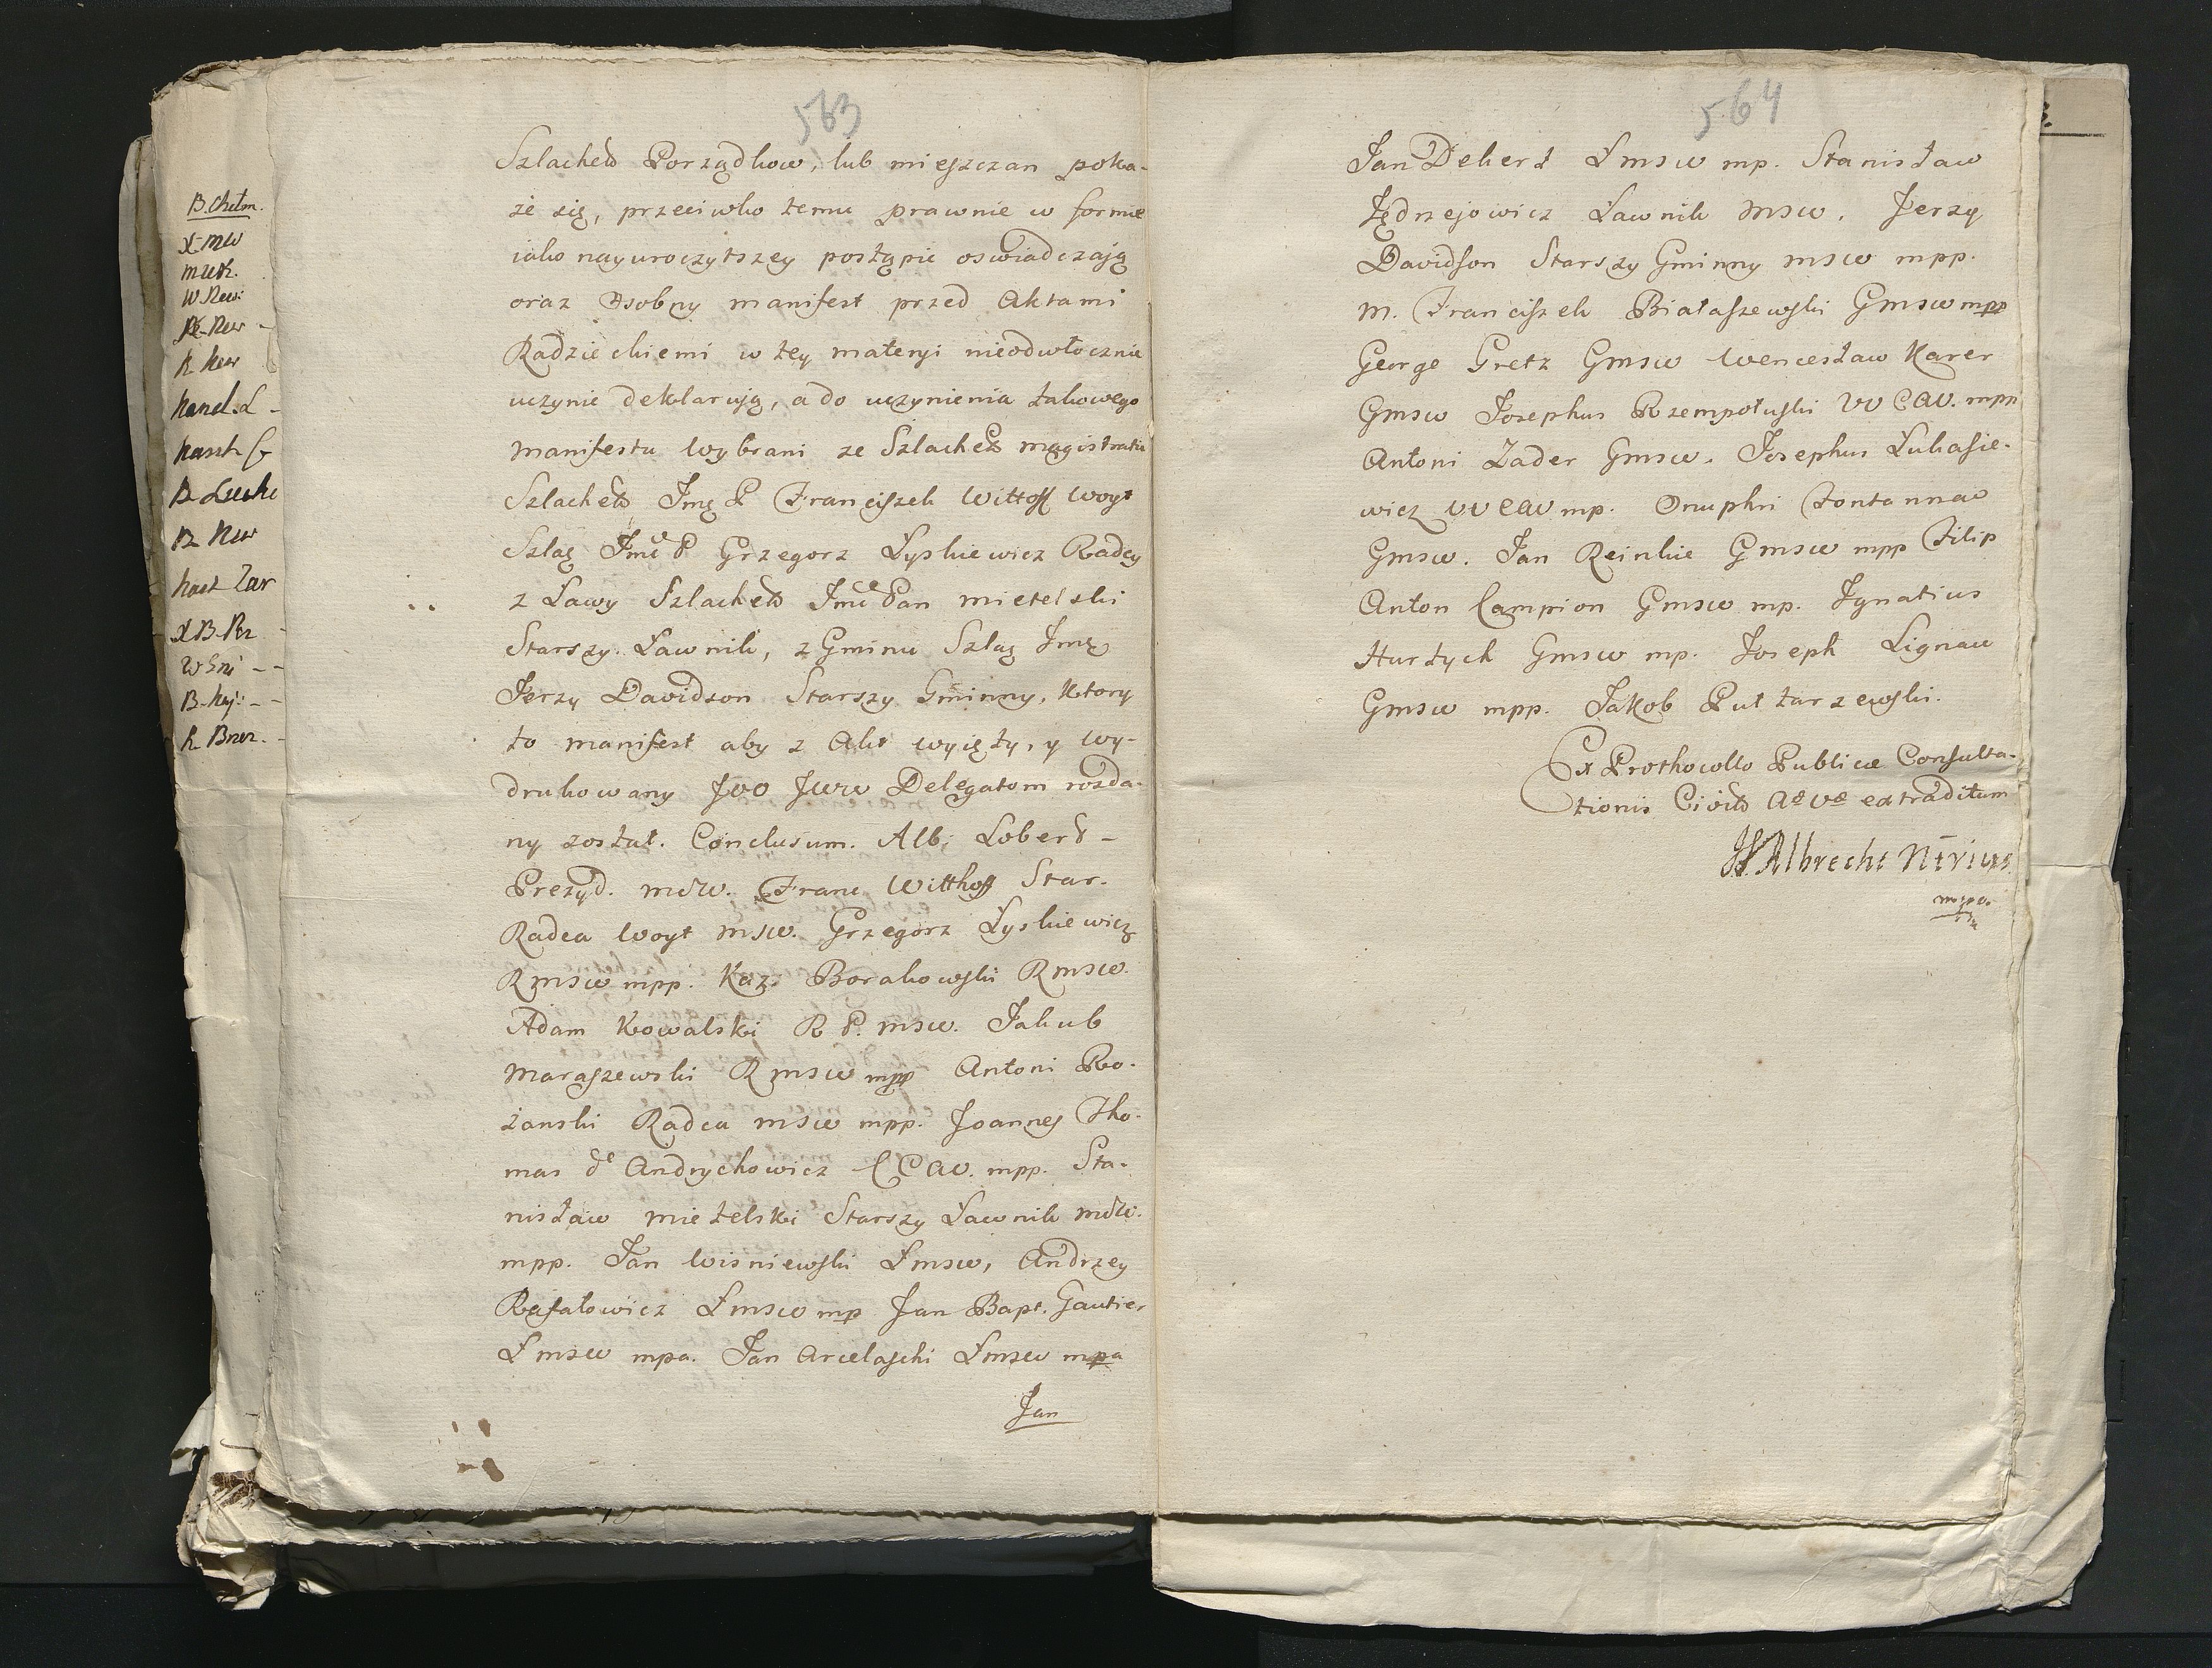 B. Chełm.
X-MW
W New:
B. Kij: - -
563
Szlachetch Porządkow, lub mieszczan poka-
że się, przeciwko temu prawnie w formie
iako nayuroczytszey postąpic oswiadczają
oraz osobny manifest przed Aktami
Radzieckiemi w tey materyi nieodwłocznie
uczynic deklarują, a do uczynienia takowego
manifestu wybrani ze Szlachet magistratu
Szlachet Jmę P Franciszek Wittoff Woyt
Szlaę Jmć P Grzegorz Łyskiewicz Radcy
z Ławy Szlachet Jmć Pan mietelski
Starszy Ławnik, z Gminu Szlaę Jmę
Jerzy Davidson Starszy Gminny, Ktory
to manifest aby z Akt wyięty, y wy-
drukowany Delegatom rozda-
ny został. Conclusum. Alb: Lobert -
Prezyd. msw. Franc Witthoff Star.
Radca Woyt msw. Grzegorz Łyskiewicz
Rmsw mpp. Kaz: Borakowski Rmsw.
Adam Kowalski R P. msw. Jakub
Maraszewski Rmsw mpp Antoni Ro-
żanski Radca msw mpp. Joannes Tho-
mas de Andrychowicz CCAV. mpp. Sta-
nisław mietelski Starszy Ławnik msw.
mpp. Jan Wisniewski Łmsw, Andrzey
Rafałowicz Łmsw mp Jan Bapt. Gautier
Łmsw mpa. Jan Arcelaschi Łmsw mpa
Jan
564
Jan Dekert Łmsw mp. Stanisław
Jędrzejowicz Ławnik msw. Jerzy
Davidson Starszy Gminny msw mpp.
M. Franciszek Białaszewski Gmsw mpp
George Gretz Gmsw Wencesław Karer
Gmsw Josephus Rzempołuski VV CAV. mpp
Antoni Zader Gmsw. Josephus Łukasie-
wicz VV CAV mp. Onuphri Fontanna
Gmsw. Jan Reinkie Gmsw mpp Filip
Anton Campion Gmsw mp. Jgnatius
Hurtych Gmsw mp. Joseph Lignau
Gmsw mpp. Jakob Puttarzewski.
Ex Prothocollo Publicae Consulta-
tionis Civit A V extraditum
Albrecht
mppa